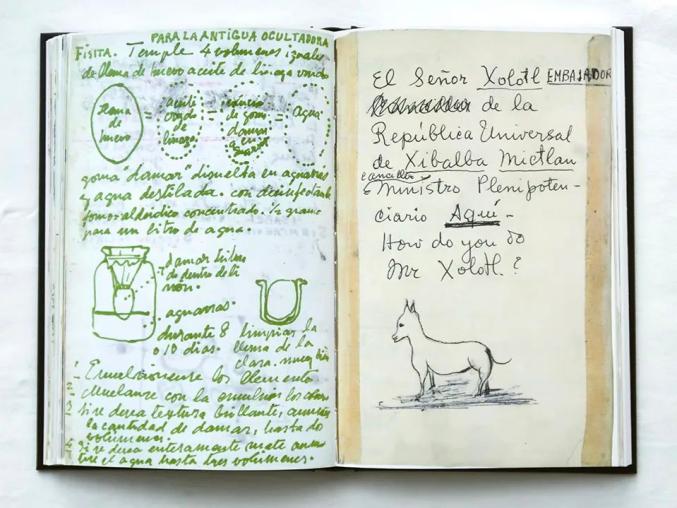 PARA LA ANTIGUA OCULTADORA
FISITA. Temple 4 volumenes iguales
de Llema de huevo aceite de linaza crudo
Llema
de
huevo
=
aceite
crudo
de
linaza
=
de goma
damar
en
=
Agua
goma "damar" disuelta en aguarras
y agua destilada. con desinfectante
formoaldeidico concentrado. ½ gramo
para un litro de agua.
damar
de dentro de
aguarras.
durante 8
o 10 dias.
limpiar la
llema de la
clara. muy bien
1- Emulcionense los elementos
2- Muelanse con la emulsion los
3 Si se desea textura brillante,
la cantidad de damar, hasta do
volumenes.
4 Si se desea enteramente mate
el agua hasta tres volúmenes.
El Señor Xolotl EMBAJADOR
de la
República Universal
de Xibalba Mictlan
canciller
Ministro Plenipoten-
ciario Aquí-
How do you do
Mr Xolotl.?